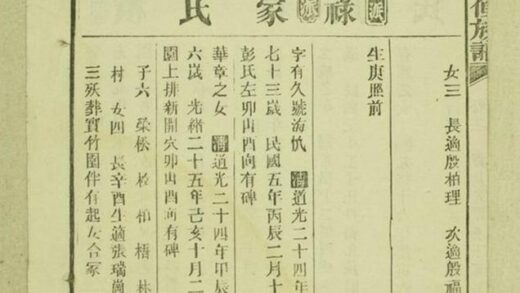 氏家祿族
女三 長適殷柏理 次適殷福
生庚歴前
字有久號海 清道光二十四年
七十三歲 民國五年丙辰二月十
彭氏左卯山酉向有碑
華章之女 清道光二十四年甲辰
六歲 光緒二十五年己亥十月二
園上排新開穴卯山酉向有碑
子六 榮松 柏 梧 林
村 女四 長辛酉生適張瑞
三殀葬實竹園伴有起女合冢